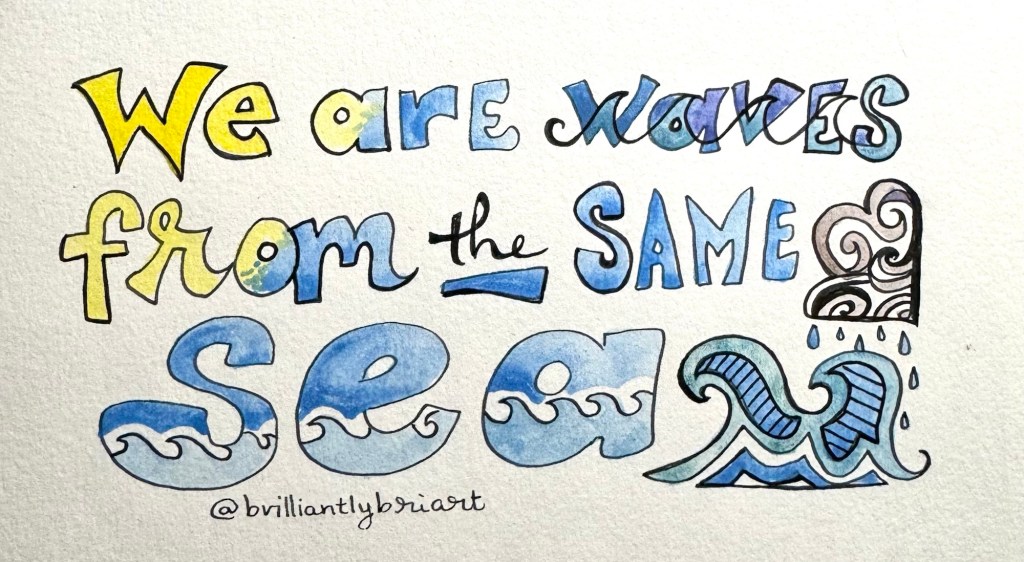 We are waves
from the SAME
sea
@brilliantlybriart